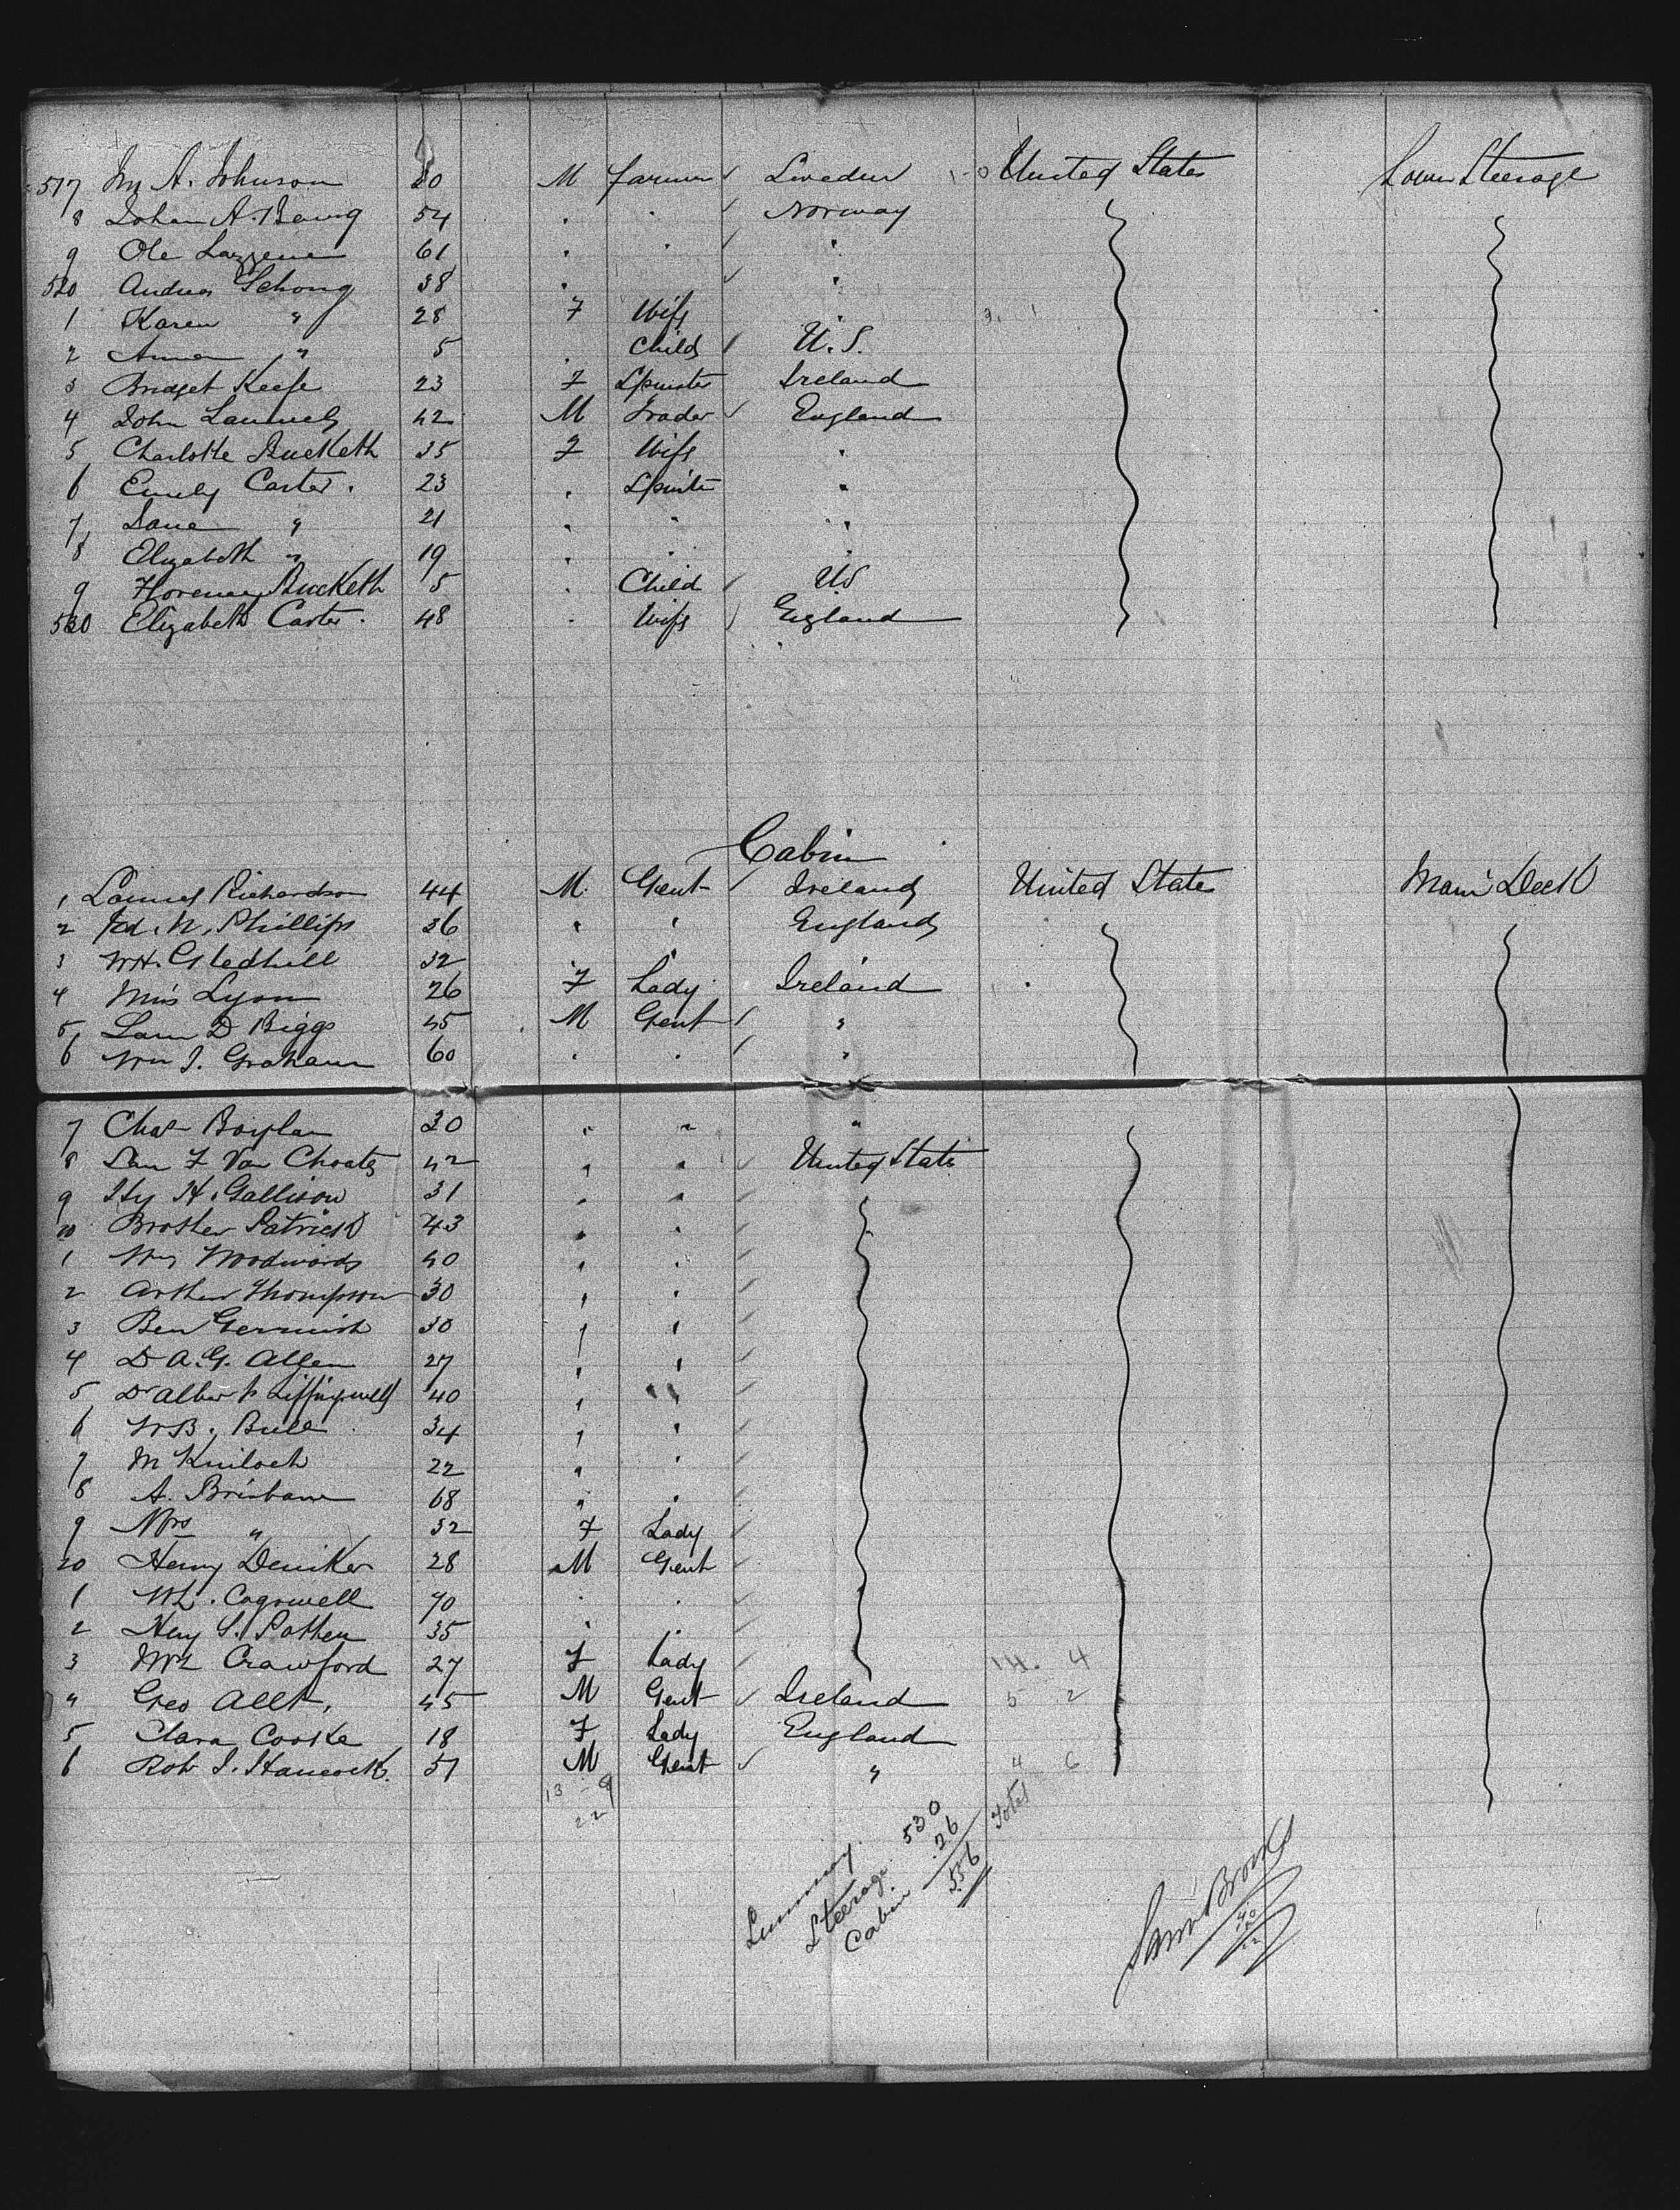 517 Jn A. Johnson 20 M farmer ✓ Sweden United States Lower Steerage
8 Johan A. Berg 54 " " ✓ Norway
9 Ole 61 " " "
520 Andreas Schong 38 " ✓ "
1 Karen " 28 F Wife "
2 Anna " 5 " Child U.S.
3 Bridget Keefe 23 F Spinster Ireland
4 John Samuels 42 M Trader ✓ England
5 Charlotte Bucketh 35 F Wife "
6 Emily Carter. 23 " Spinster "
7 Jane " 21 " " "
8 Elizabeth " 19 " " "
9 Florence Bucketh 5 " Child US
530 Elizabeth Carter. 48 " Wife England
Cabin
1 Samuel Richardson 44 M. Gent Ireland United States Main Deck
2 Ed. N. Phillips 36 " " England
3 W.H. Gledhill 32 " "
4 Miss Lyon 26 F Lady Ireland
5 Sam D Biggs 45 M Gent "
6 Wm J. Graham 60 " " "
7 Chas Boylan 30 " " "
8 Sam F Van Choate 42 " " ✓ United States
9 Hy H. Gallison 31 " "
10 Brother Patrick 43 " "
1 Wm Woodwards 40 " "
2 Arthur Thompson 30 " "
3 Ben Gerrish 30 " "
4 Dr A. G. Allen 27 " "
5 Dr Albert Leffingwell 40 " "
6 W B. Bull 34 " "
7 M Kinloch 22 " "
8 A. Brisbane 68 " "
9 Mrs " 32 F Lady
20 Henry Deniker 28 M Gent
1 W L. Cogswell 70 " "
2 Heny S. Pothen 35 " "
3 Mrs Crawford 27 F Lady 14. 4
4 Geo Allt. 45 M Gent ✓ Ireland 5 2
5 Clara Cooke 18 F Lady England
6 Rob J. Hancock. 51 M Gent ✓ " 4 6
13 - 9
22
Summary
Steerage. 530
Cabin 26
556 Total
Saml Brooks